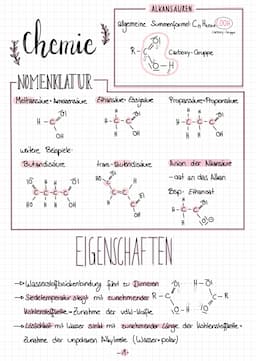 ALKANSÄUREN
Chemie
allgemeine Summenformel: CnH2n+1COOH
Carboxy-Gruppe
R-C
O-H
Carboxy-Gruppe
NOMENKLATUR
Methansäure - Ameisensäure
Ethansäure - Essigsäure
Propansäure - Propionsäure
weitere Beispiele:
Butandisäure
trans-Butendisäure
Anion der Alkansäure
-oat an das Alkan
Bsp.: Ethanoat
EIGENSCHAFTEN
→ Wasserstoffbrückenbindung führt zu Dimeren
→ Siedetemperatur steigt mit zunehmender
Kohlenstoffkette - Zunahme der vdW-Kräfte
→ Löslichkeit mit Wasser sinkt mit zunehmender Länge der Kohlenstoffkette -
Zunahme der unpolaren Alkylreste (Wasser = polar)